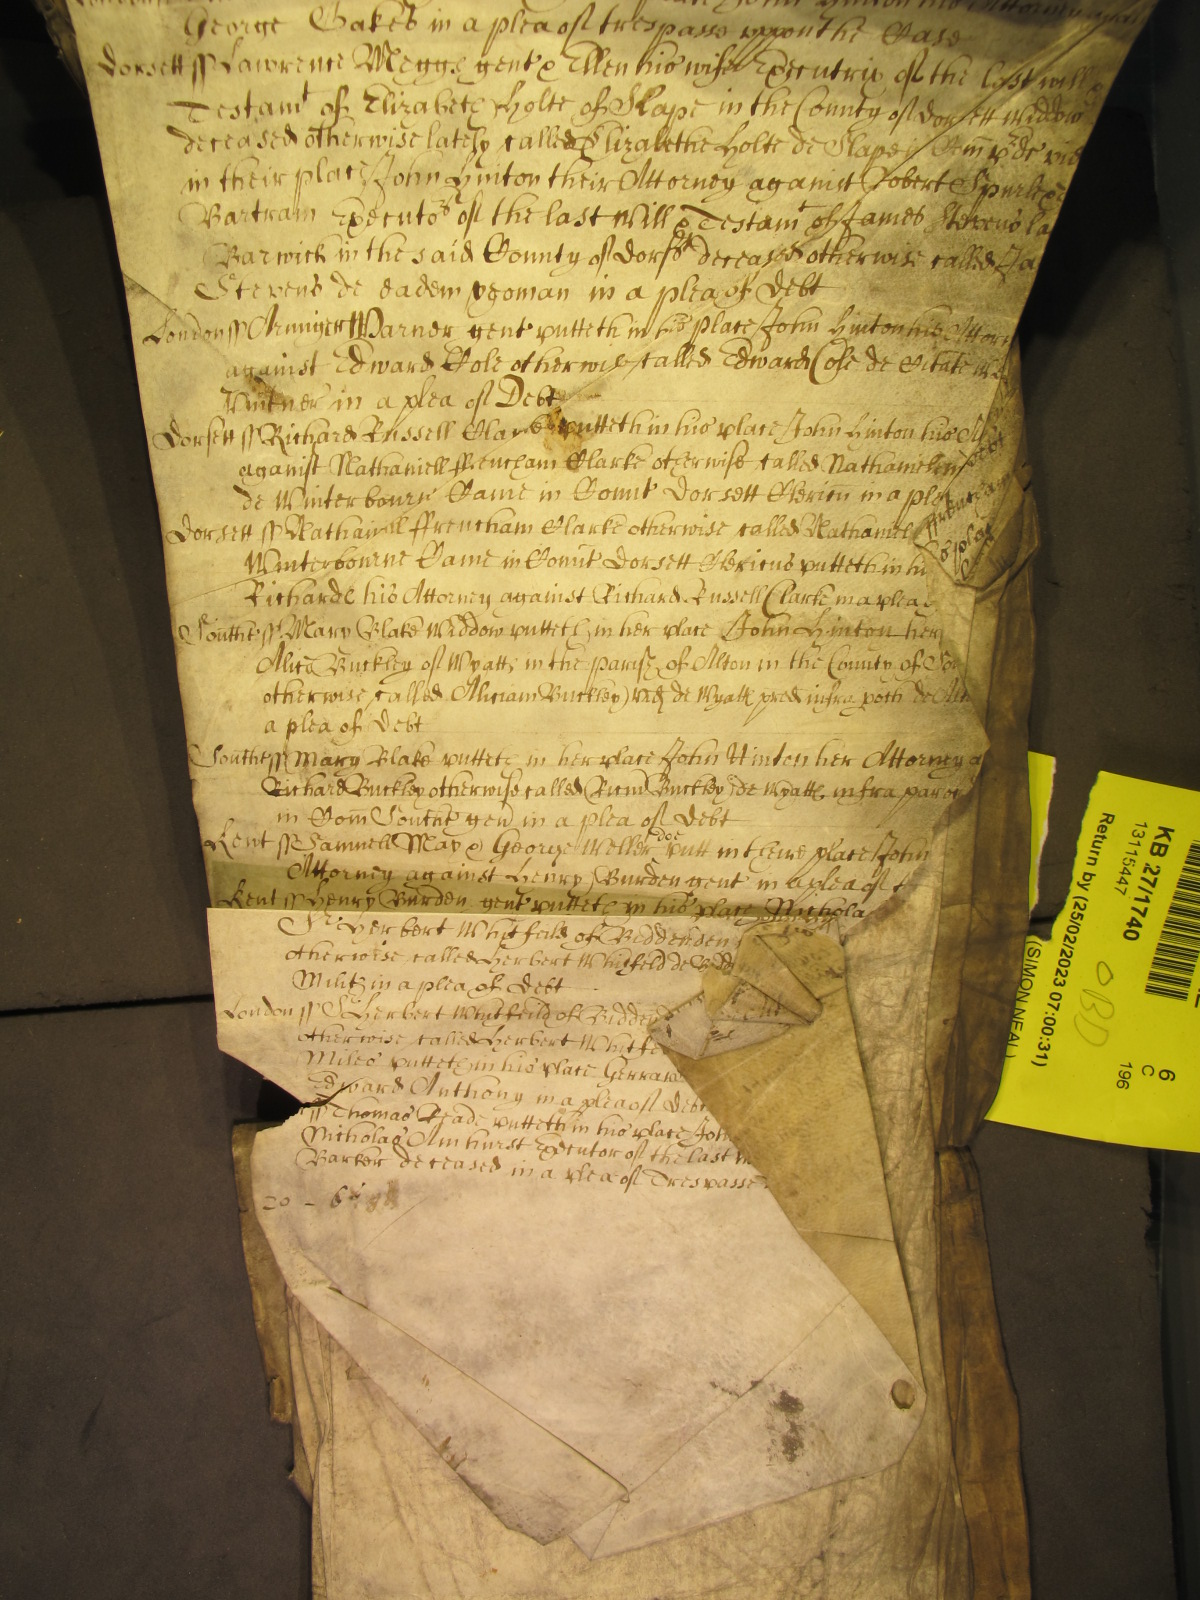 George Oakes in a plea of trespass uppon the Case
Dorsett ss Lawrence Meggs gent & Ellen his wife Executrix of the last will &
Testamt of Elizabeth Holte of Slape in the County of Dorsett Widdow
deceased otherwise lately called Elizabethe Holte de Slape in
in their place John Hinton their Attorney against Robert
Bartram Executors of the last Will & Testamt of James Stevens la
Barwick in the said County of Dorsett deceased otherwise called Ja
Stevens de eadem yeoman in a plea of Debt
London ss Arminger Warner gent putteth in his place John Hinton his Attor
against Edward Cole otherwise called Edward Cole de
Vintner in a plea of Debt
Dorsett ss Richard Russell Clarke putteth in his place John Hinton his
against Nathaniell ffrencham Clarke otherwise called Nathaniel
de Winterbourne Came in Comit Dorsett Clericu in a plea
Dorsett ss Nathaniell ffrencham Clarke otherwise called Nathaniel ffrencham
Winterbourne Came in Comit Dorsett Clericus putteth in hi s place
Richards his Attorney against Richard Russell Clarke in a plea
Southt ss Mary Blake Widdow putteth in her place John Hinton her
Alice Buckley of Wyatts in the parish of Alton in the County of So
otherwise called Aliciam Buckley vid de Wyatts pred infra poch de Alt
a plea of Debt
Southt ss Mary Blake putteth in her place John Hinton her Attorney a
Richard Buckley otherwise called Ricum Buckley de Wyatts infra paroc
in Com Southt gen in a plea of Debt
Kent ss Samuell May & George Meller doe putt in theire place John
Attorney against Henry Burden gent in a plea of t
Kent ss Henry Burden gent putteth in his place Nichola
Sr Herbert Whitfeild of Biddenden
otherwise called Herbert Whitfeild de Bidd
Militi in a plea of Debt
London ss Sr Herbert Whitfeild of Bidden
otherwise called Herbert Whitfe
Miles putteth in his place Gerrard
Edward Anthony in a plea of Debt
ss Thomas Reade putteth in his place John
Nicholas Amhurst Executor of the last w
Barker deceased in a plea of Trespasse
20 -
KB 27/1740
13115447
Return by (25/02/2023 07:00:31)
(SIMON NEAL)
6
C
196